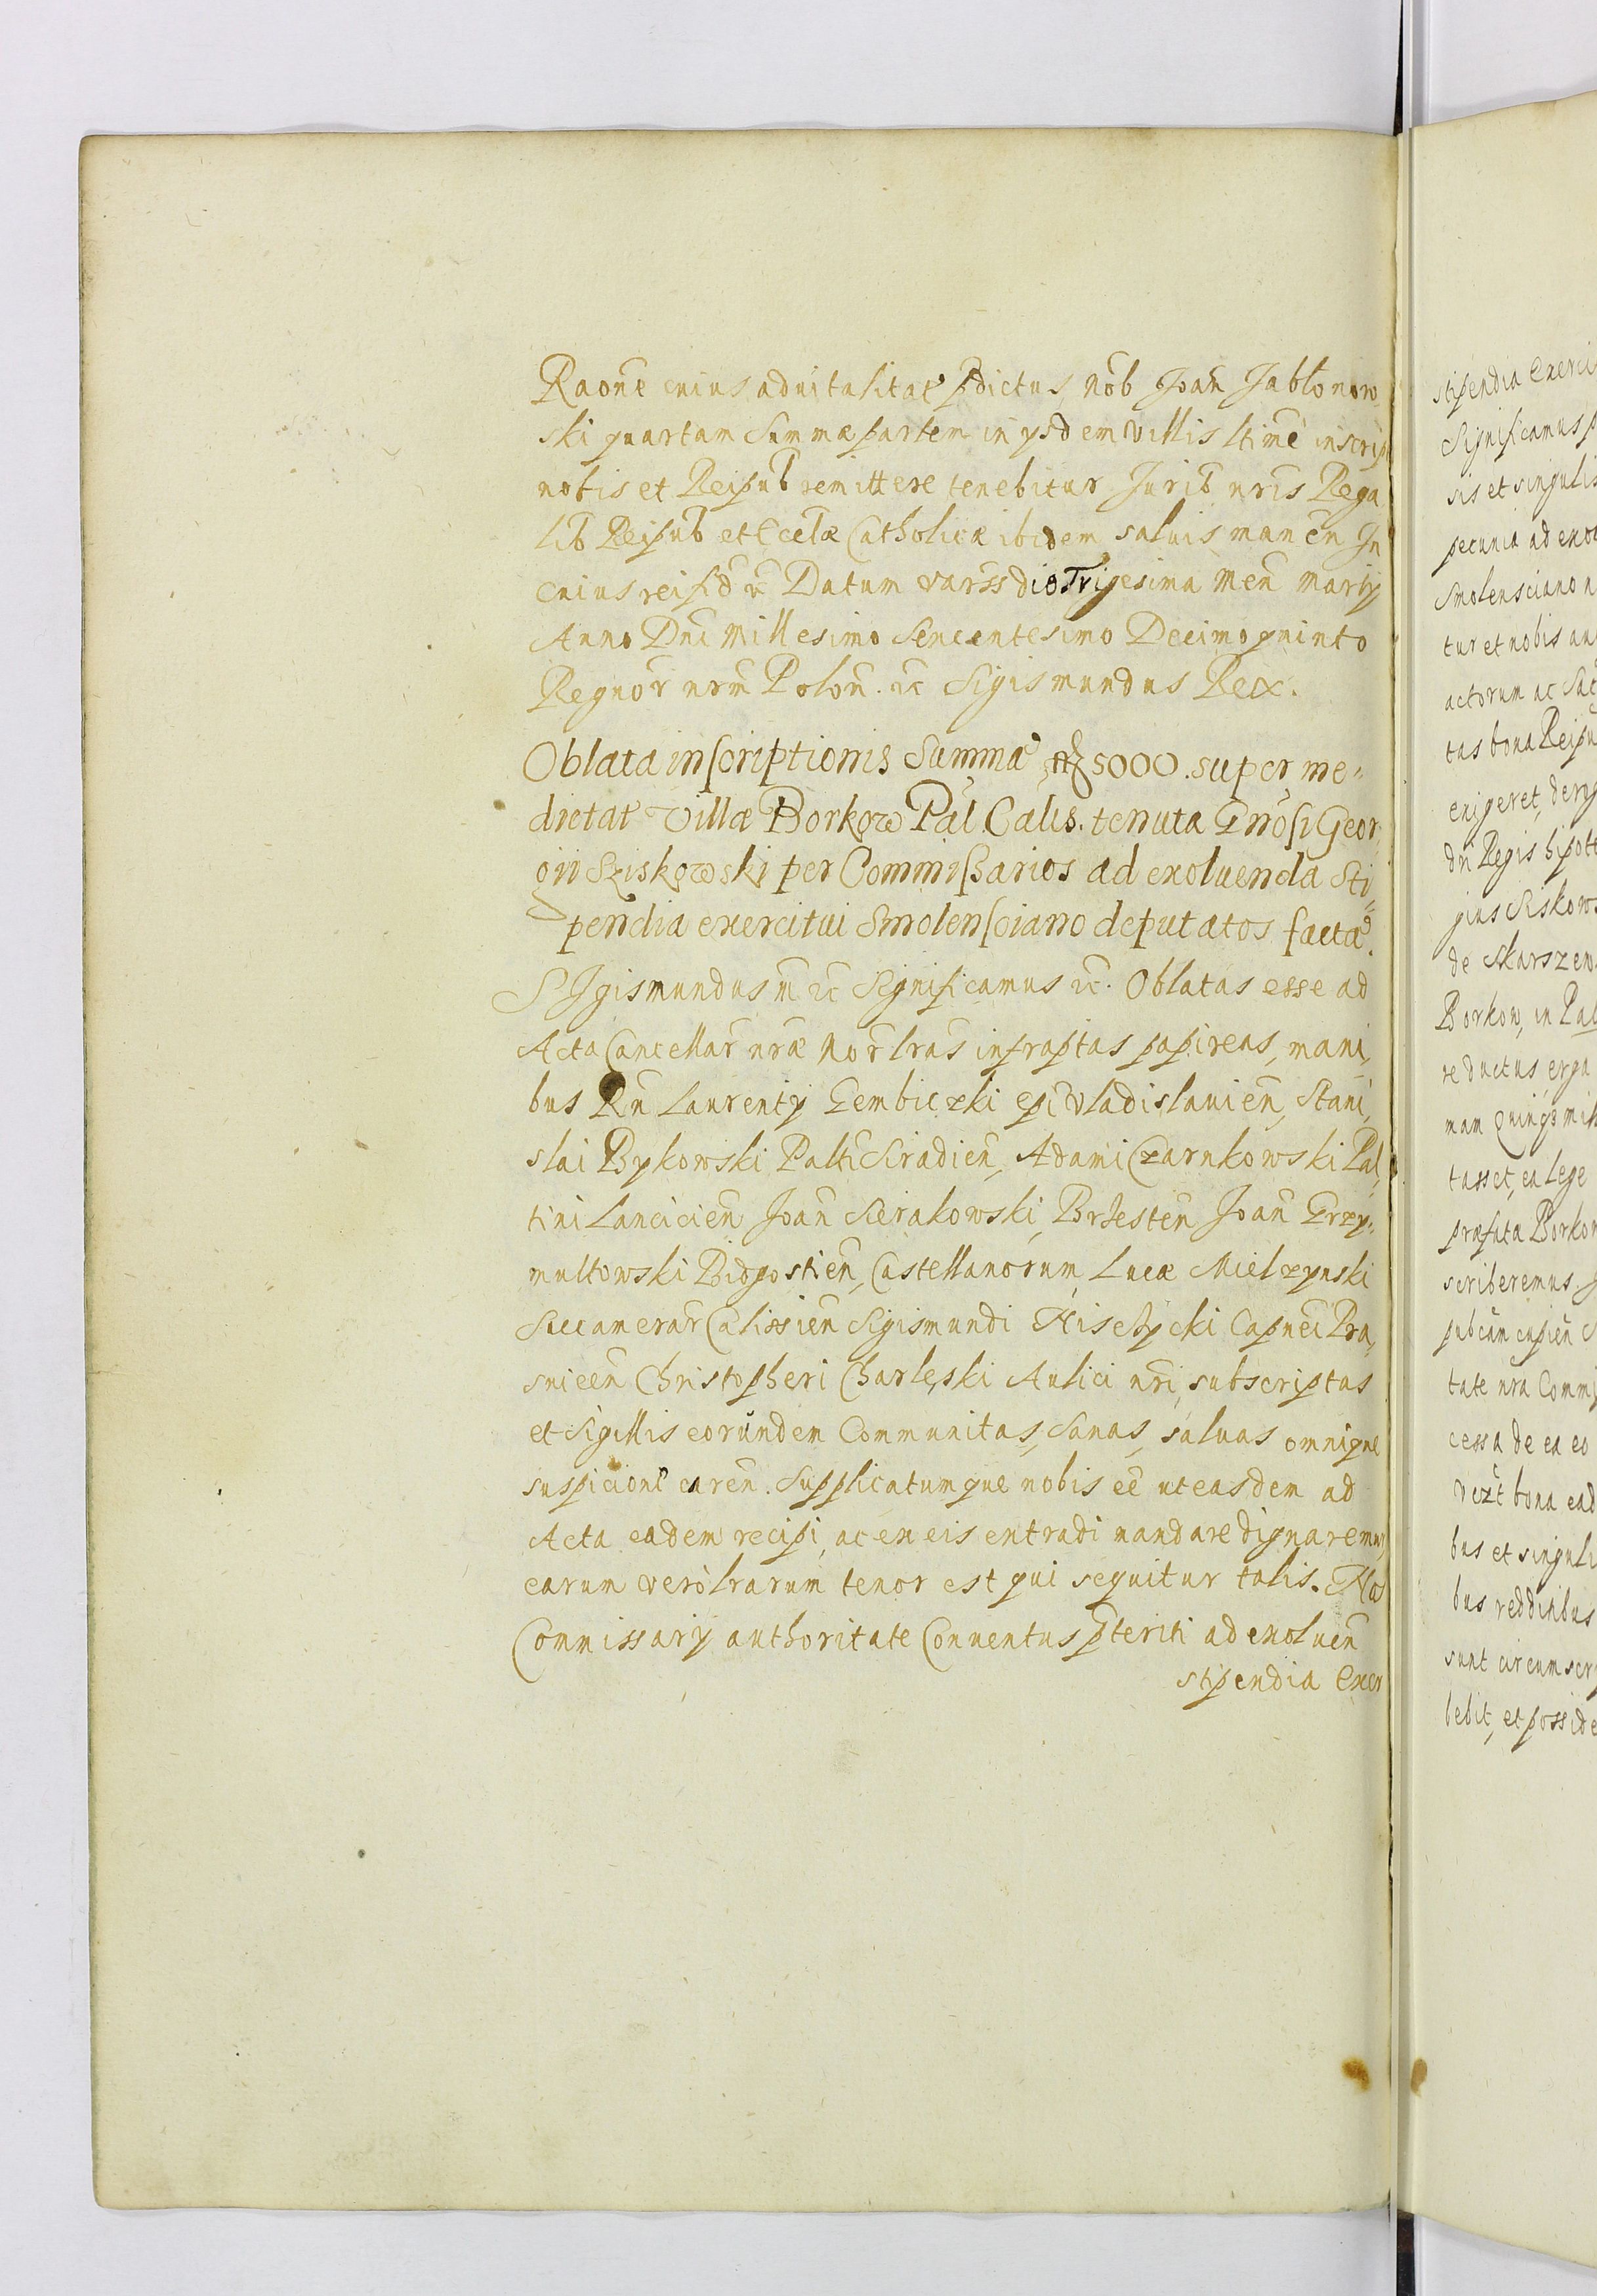 Raone cuius aduitalitat pdictus Nob Joan Jablonow
ski quartam Summæ partem in ysdem Villis ltime inscrip
nobis et Reipub remittere tenebitur Jurib nris Rega
lib Reipub et Ecclæ Catholicæ ibidem saluis manen In
cuius rei fid &c Datum Varss die Trigesima Men Martij
Anno Dni Millesimo Sexcentesimo Decimo quinto
Regnor nrm Polon. &c Sigismundus Rex.
Oblata inscriptionis Summæ 5000. super me=
dietat Villæ Borkow Pal. Calis. tenutæ Gnosi Geor
gii Sziskowski per Commissarios ad exoluenda Sti=
pendia exercitui Smolensciano deputatos factæ.
SIgismundus &c Significamus &c. Oblatas esse ad
Acta Cancellar nræ Mor lras infraptas papireas, mani,
bus Rn Laurentij Gembiczki Epi Vladislauien, Stani,
slai Bykowski Paltī Siradien, Adami Czarnkowski Pal,
tini Lancicien Joan Sierakowski, Brzesten Joan Grzy=
multowski Bidgostien, Castellanorum, Lucæ Mielzynski
Succamerar Calissien Sigismundi Capnei Pra,
snicen Christopheri Charleski Aulici nri, subscriptas
et Sigillis eorundem Communitas, Sanas, saluas omnique
suspicione caren. Supplicatumque nobis eē ut easdem ad
Acta eadem recipi, ac ex eis extradi mandare dignaremur,
earum vero lrarum tenor est qui sequitur talis. Nos
Commissarij authoritate Conuentus pteriti ad exoluen
stipendia Exer
stipendia Exerci
Significamus
sis et singulis
pecunia ad exo
Smolensciano
tur et nobis
actorum ac
tas bona Reipu
exigeret,
dni Regis
gius Siskows
de Skarszew
Borkow, in Pal
reductus, erga
mam Quinqs mil
tasset, ea lege
præfata Borkow
scriberemus.
pubcum cupien
tate nra Commi
cessa de ea eo
bona ead
bus et singuli
bus redditibus
sunt circumscr
bebit, et posside